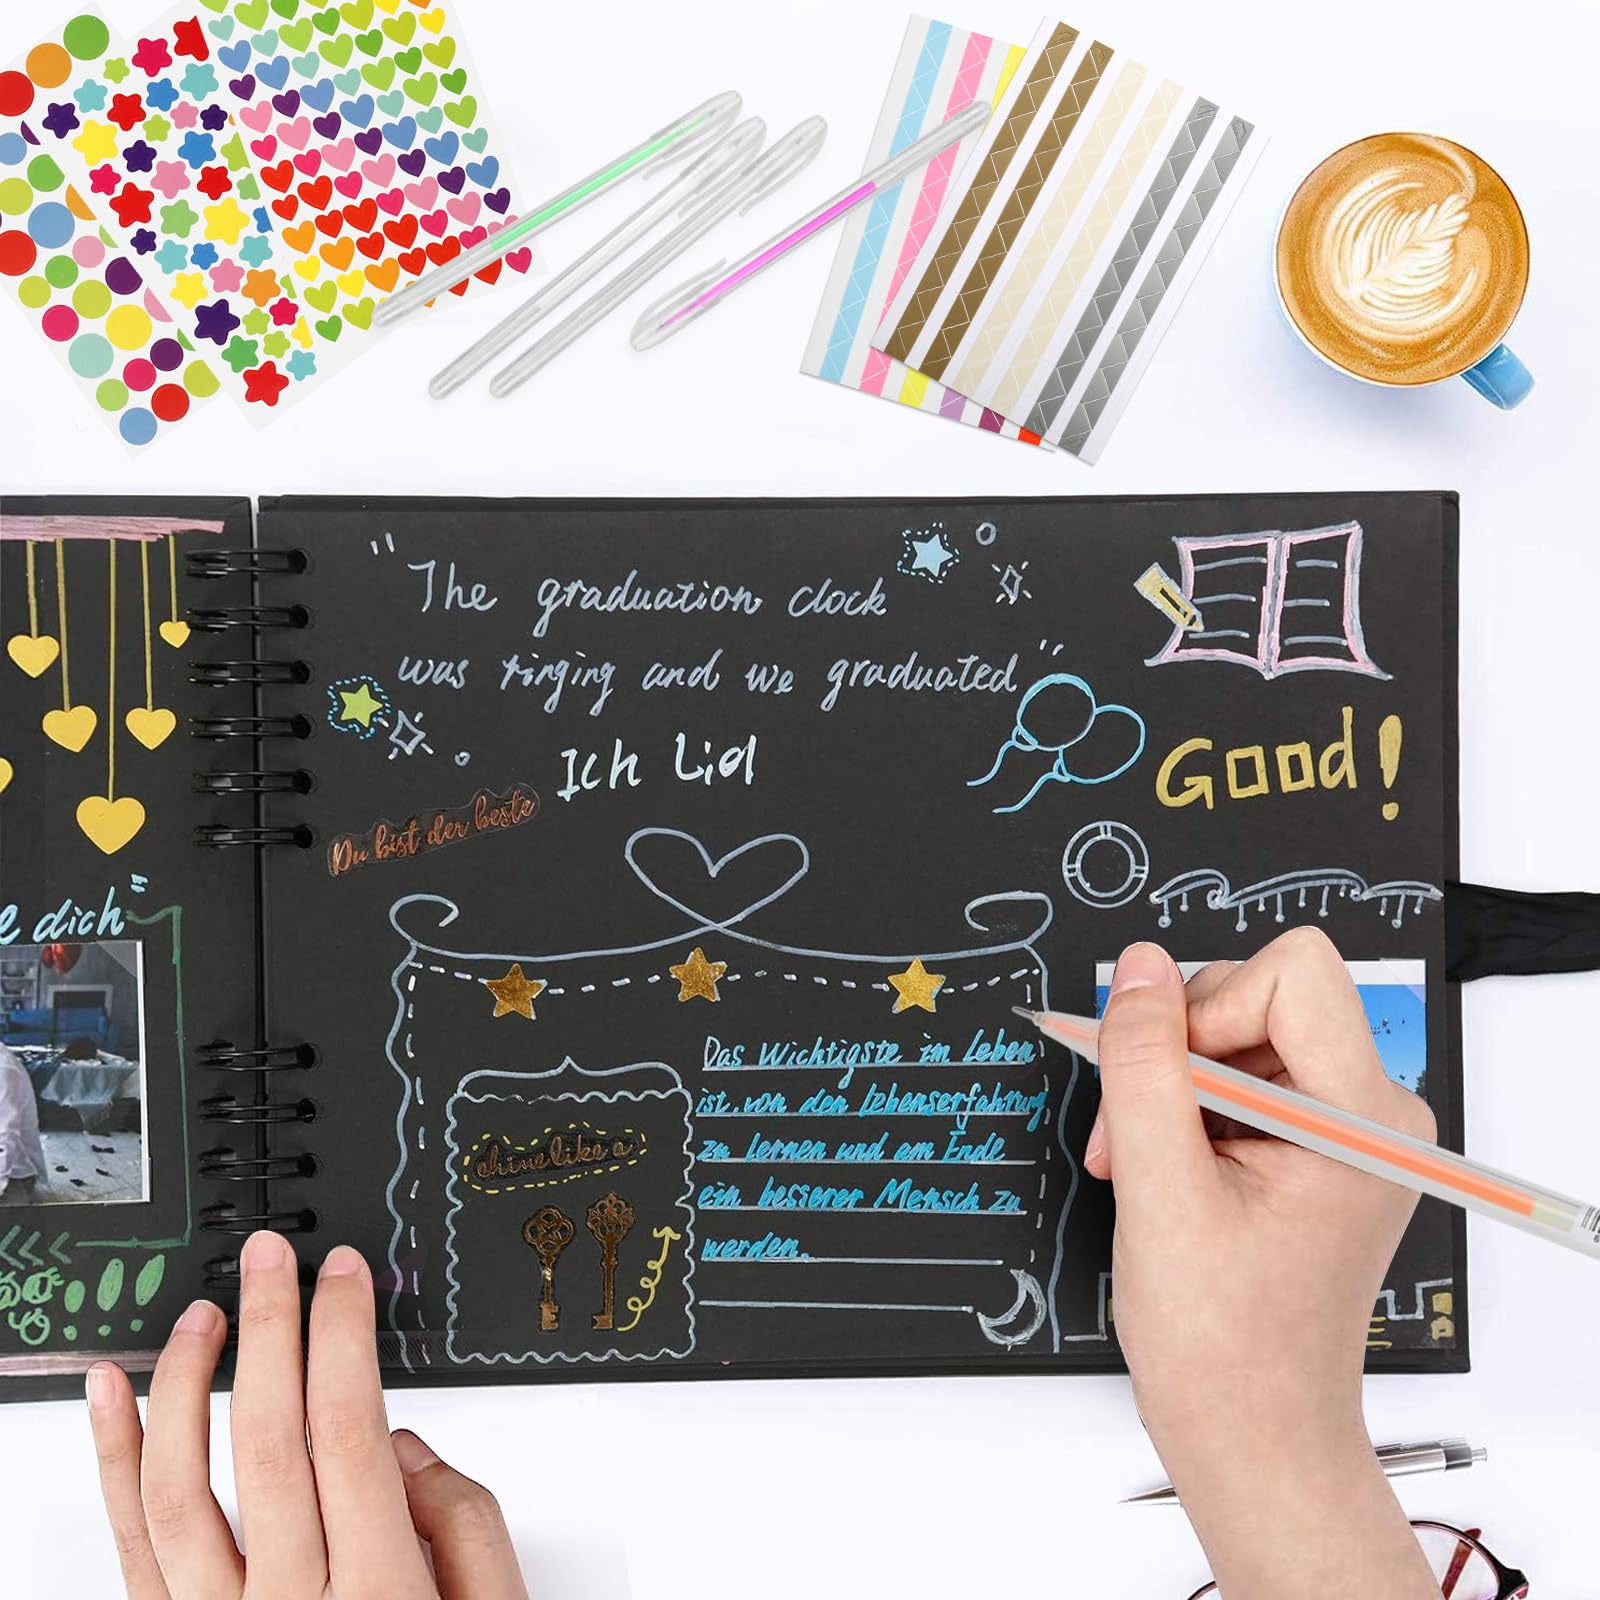 "The graduation clock
was ringing and we graduated"
Ich Lid
Good!
Du bist der beste
e dich"
Das Wichtigste im Leben
ist, von den Lebenserfahrung
zu lernen und am Ende
ein besserer Mensch zu
werden.
shine like a